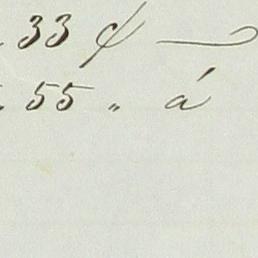 33 ₰
55 " á